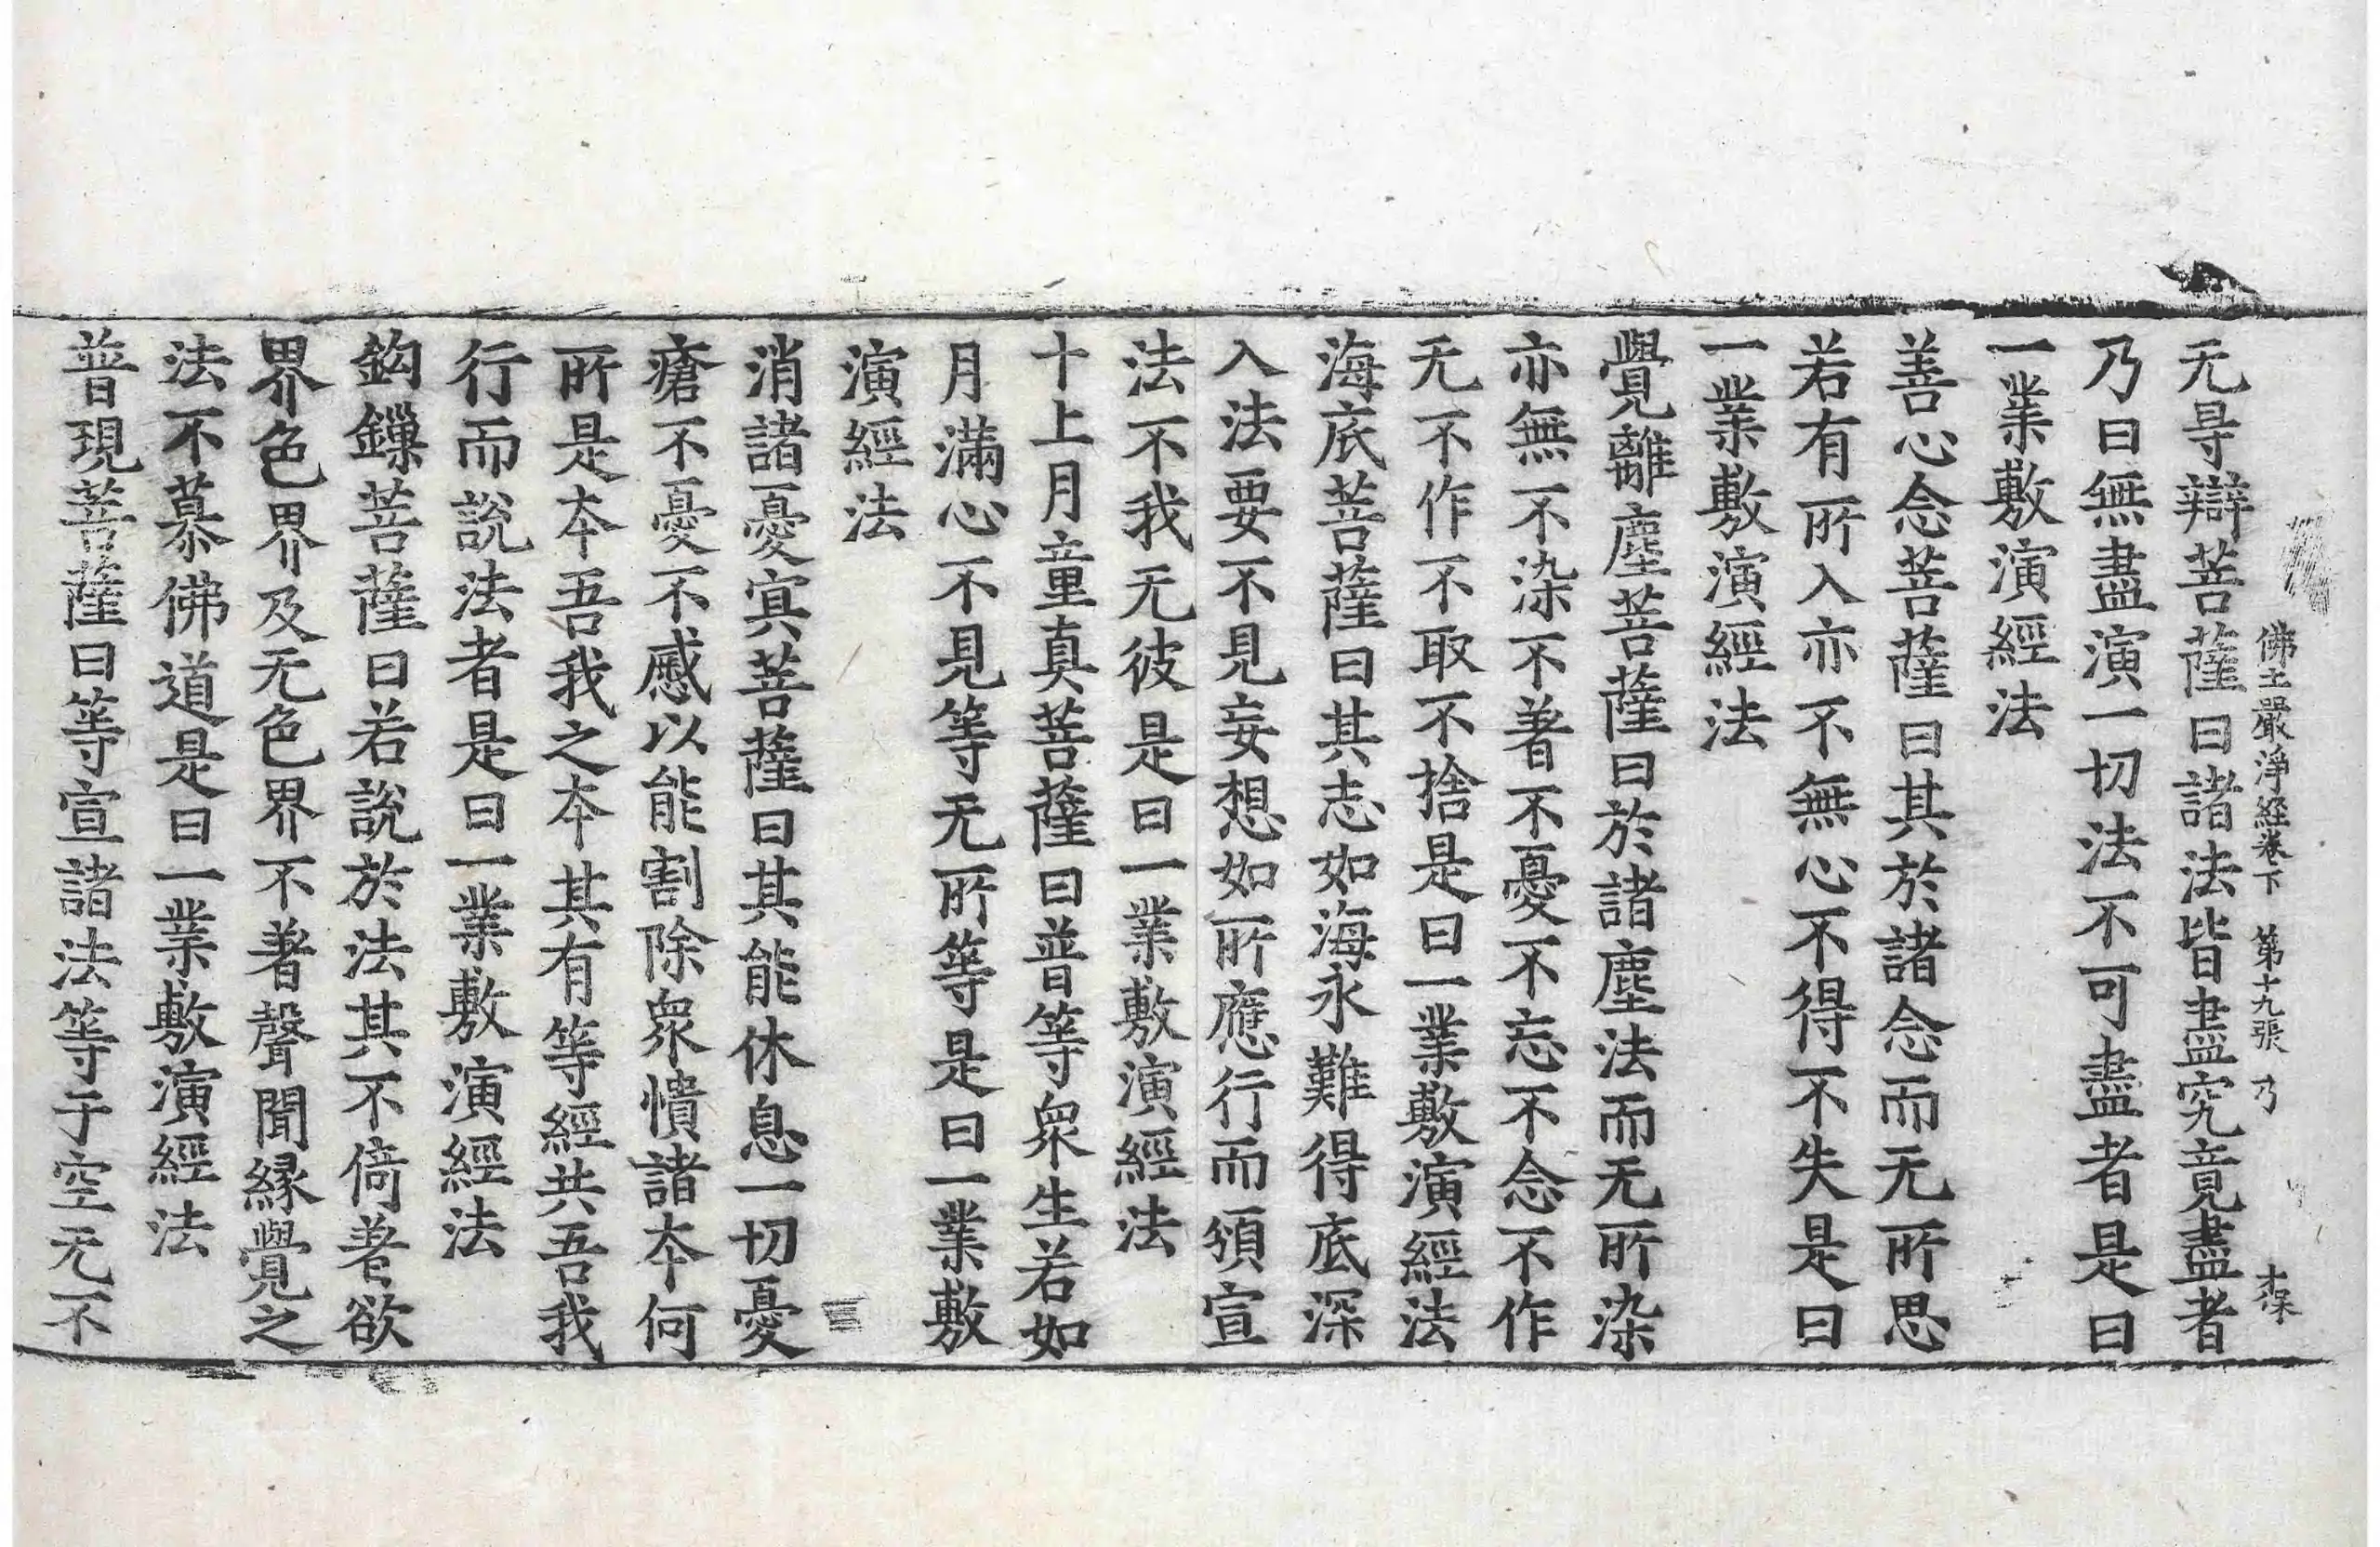 佛土嚴淨經卷下　第十九張　乃
无㝵辯菩薩曰諸法皆盡究竟盡者
乃曰無盡演一切法不可盡者是曰
一業敷演經法
善心念菩薩曰其於諸念而无所思
若有所入亦不無心不得不失是曰
一業敷演經法
覺離塵菩薩曰於諸塵法而无所染
亦無不染不著不憂不忘不念不作
无不作不取不捨是曰一業敷演經法
海底菩薩曰其志如海永難得底深
入法要不見妄想如所應行而頒宣
法不我无彼是曰一業敷演經法
十上月童真菩薩曰普等衆生若如
月滿心不見等无所等是曰一業敷
演經法
消諸憂㝠菩薩曰其能休息一切憂
瘡不憂不慼以能割除衆憒諸夲何
所是夲吾我之夲其有等經共吾我
行而說法者是曰一業敷演經法
鈎鏁菩薩曰若說於法其不倚著欲
界色界及无色界不著聲聞緣覺之
法不慕佛道是曰一業敷演經法
普現菩薩曰等宣諸法等于空无不